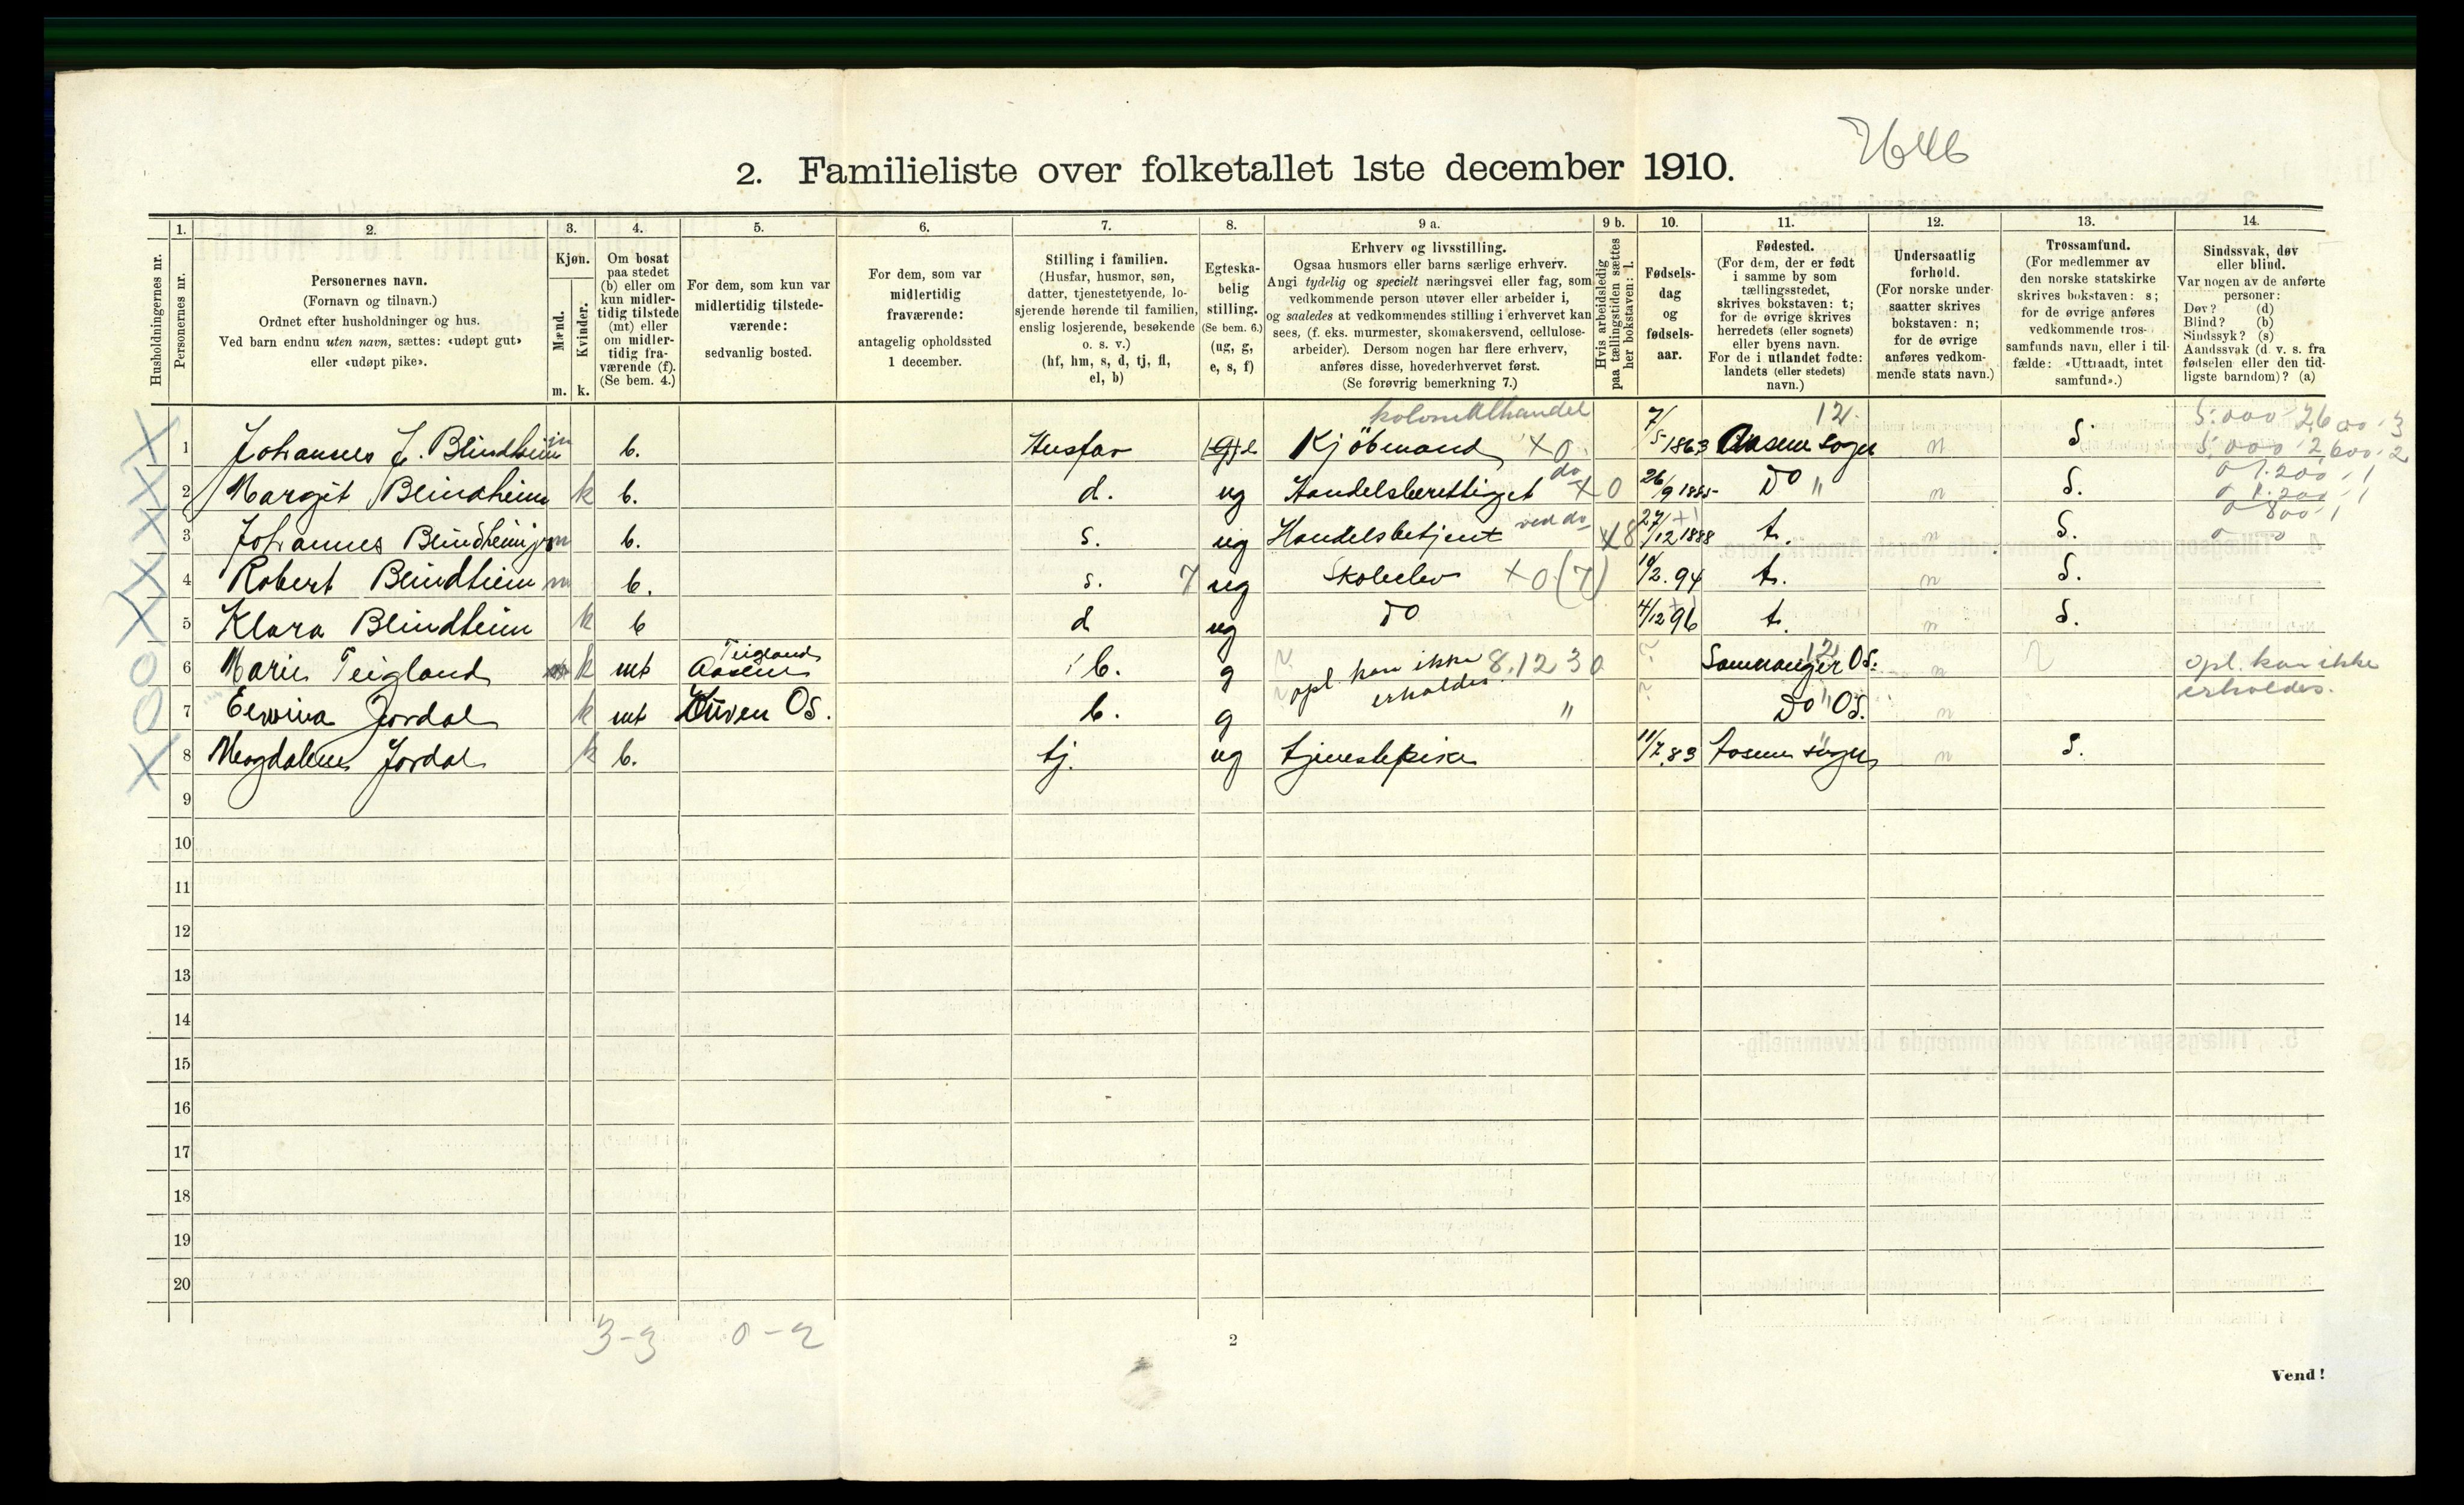 2. Familieliste over folketallet 1ste december 1910.
1. 2. 3. 4. 5. 6. 7. 8. 9 a. 9 b. 10. 11. 12. 13. 14.
Husholdningernes nr.
Personernes nr.
Personernes navn.
(Fornavn og tilnavn.)
Ordnet efter husholdninger og hus.
Ved barn endnu uten navn, sættes: «udøpt gut»
eller «udøpt pike».
Kjøn.
Mænd.
Kvinder.
m. k.
Om bosat
paa stedet
(b) eller om
kun midler-
tidig tilstede
(mt) eller
om midler-
tidig fra-
værende (f).
(Se bem. 4.)
For dem, som kun var
midlertidig tilstede-
værende:
sedvanlig bosted.
For dem, som var
midlertidig
fraværende:
antagelig opholdssted
1 december.
Stilling i familien.
(Husfar, husmor, søn,
datter, tjenestetyende, lo-
sjerende hørende til familien,
enslig losjerende, besøkende
o. s. v.)
(hf, hm, s, d, tj, fl,
el, b)
Egteska-
belig
stilling.
(Se bem. 6.)
(ug, g,
e, s, f)
Erhverv og livsstilling.
Ogsaa husmors eller barns særlige erhverv.
Angi tydelig og specielt næringsvei eller fag, som
vedkommende person utøver eller arbeider i,
og saaledes at vedkommendes stilling i erhvervet kan
sees, (f. eks. murmester, skomakersvend, cellulose-
arbeider). Dersom nogen har flere erhverv,
anføres disse, hovederhvervet først.
(Se forøvrig bemerkning 7.)
Hvis arbeidsledig
paa tællingstiden sættes
her bokstaven: l.
Fødsels-
dag
og
fødsels-
aar.
Fødested.
(For dem, der er født
i samme by som
tællingsstedet,
skrives bokstaven: t;
for de øvrige skrives
herredets (eller sognets)
eller byens navn.
For de i utlandet fødte:
landets (eller stedets)
navn.)
Undersaatlig
forhold.
(For norske under-
saatter skrives
bokstaven: n;
for de øvrige
anføres vedkom-
mende stats navn.)
Trossamfund.
(For medlemmer av
den norske statskirke
skrives bokstaven: s;
for de øvrige anføres
vedkommende tros-
samfunds navn, eller i til-
fælde: «Uttraadt, intet
samfund».)
Sindssvak, døv
eller blind.
Var nogen av de anførte
personer:
Døv? (d)
Blind? (b)
Sindssyk? (s)
Aandssvak (d. v. s. fra
fødselen eller den tid-
ligste barndom)? (a)
kolonialhandel 12. 5.000 2600 · 3
1 Johannes J. Blindheim m b. Husfar e Kjöbmand X 0 7/5 1863 sogn n S. 5.000 · 2,600 · 2
do 0 1.200 · 1
2 Margit Blindheim k b. d. ug Handelsberettiget X 0 26/9 1885 Do " n S. 0 1.200 · 1
ved do 0 800 · 1
3 Johannes Blindheim jr m b. s. ug Handelsbetjent X8 27/12 1888 t. n S.
4 Robert Blindheim m b. s. 7 ug Skoleelev X 0 (7) 10/2. 94 t. n S.
5 Klara Blindheim k b d ug Do 4/12 96 t. n S.
Teigland 12
6 Marie Teigland k mt b. g opl. kan ikke 8.12 30 ? Samnanger Os. n ? opl. kan ikke
erholdes. erholdes.
7 Jordal k mt Os. b. g " ? Do " Os. n
8 Magdalene Jordal k b. tj. ug tjenestepike 11/7.83 sogn n S.
9
10
11
12
13
14
15
16
17
18
19
20
3-3 0-2
2
Vend!